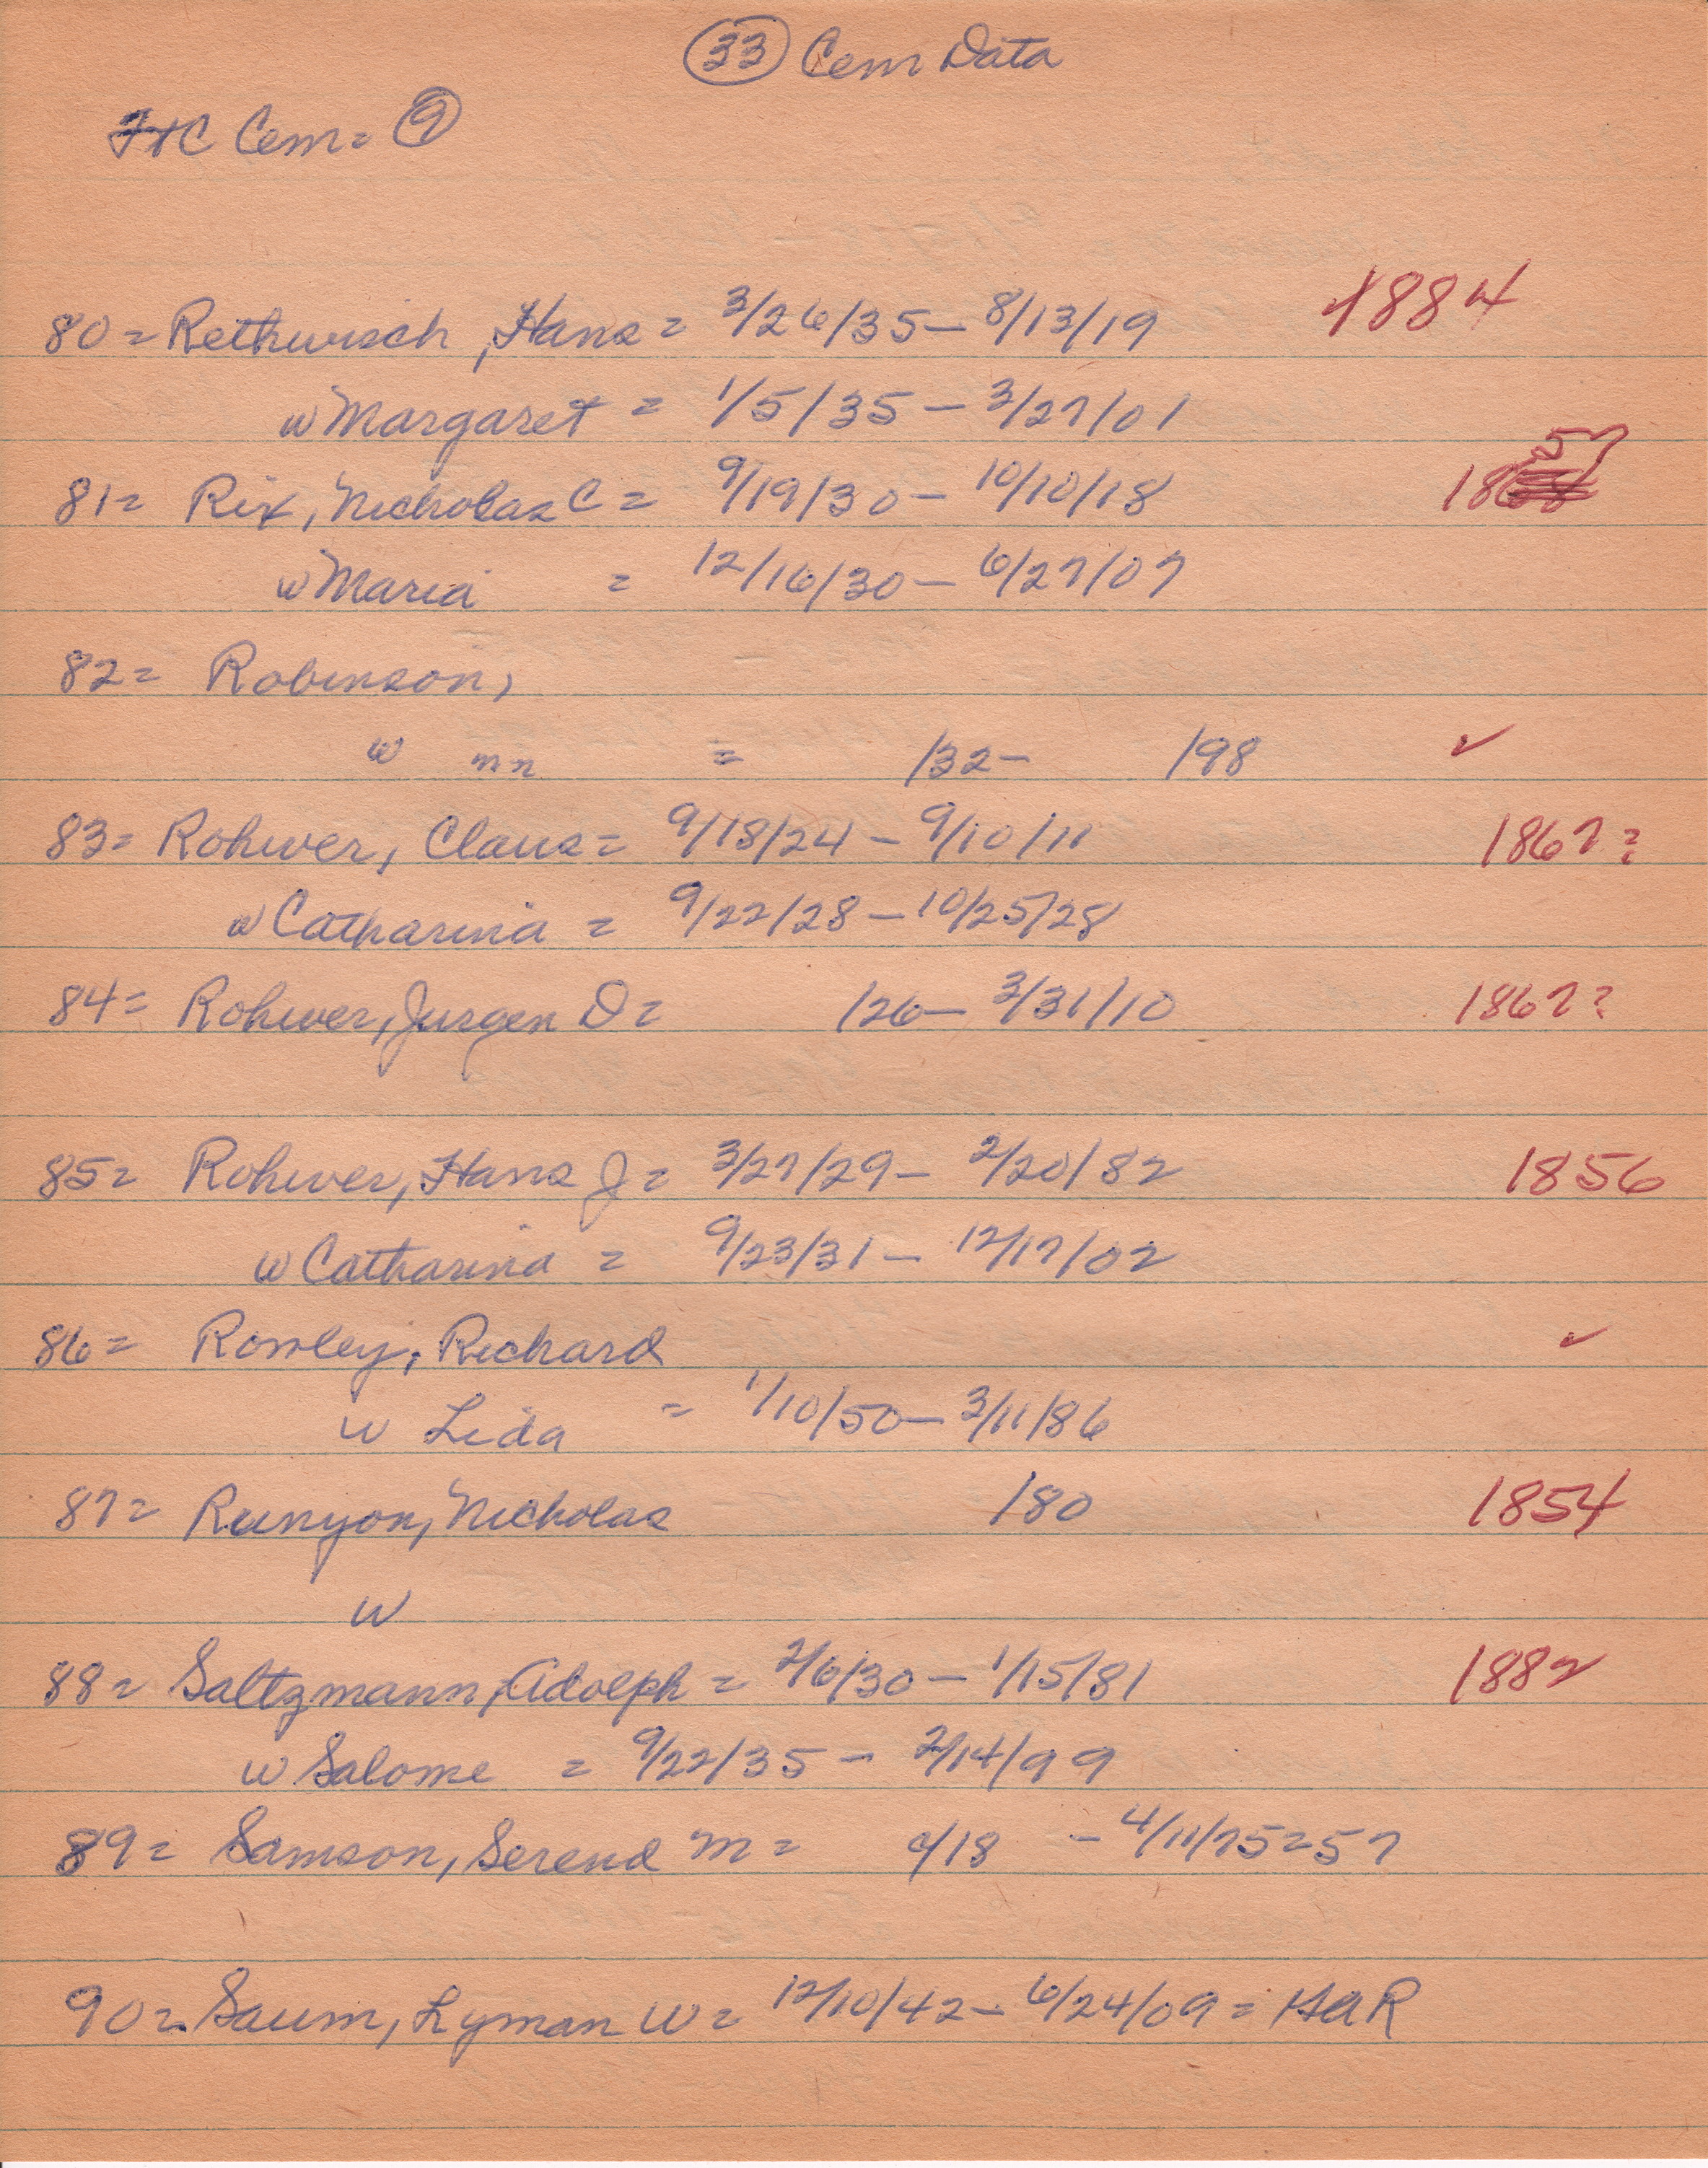 33 Cem Data
FtC Cem = 9
80 = Rethwisch, Hans = 3/26/35 - 8/13/19 1884
w Margaret = 1/5/35 - 3/27/01
81 = Rix, Nicholas C = 9/19/30 - 10/10/18 1857
w Maria = 12/16/30 - 6/27/07
82 = Robinson,
w mn = /32 - /98 ✓
83 = Rohwer, Claus = 9/18/24 - 9/10/11 1867?
w Catharina = 9/22/28 - 10/25/28
84 = Rohwer, Jurgen D = /26 - 3/31/10 1867?
85 = Rohwer, Hans J = 3/27/29 - 2/20/82 1856
w Catharina = 9/23/31 - 12/17/02
86 = Rowley, Richard ✓
w Lida = 1/10/50 - 3/11/86
87 = Runyon, Nicholas /80 1854
w
88 = Saltzmann, Adolph = 2/6/30 - 1/15/81 1882
w Salome = 9/22/35 - 2/14/99
89 = Samson, Serend M = /18 - 4/11/75 = 57
90 = Saum, Lyman W = 12/10/42 - 6/24/09 = GAR